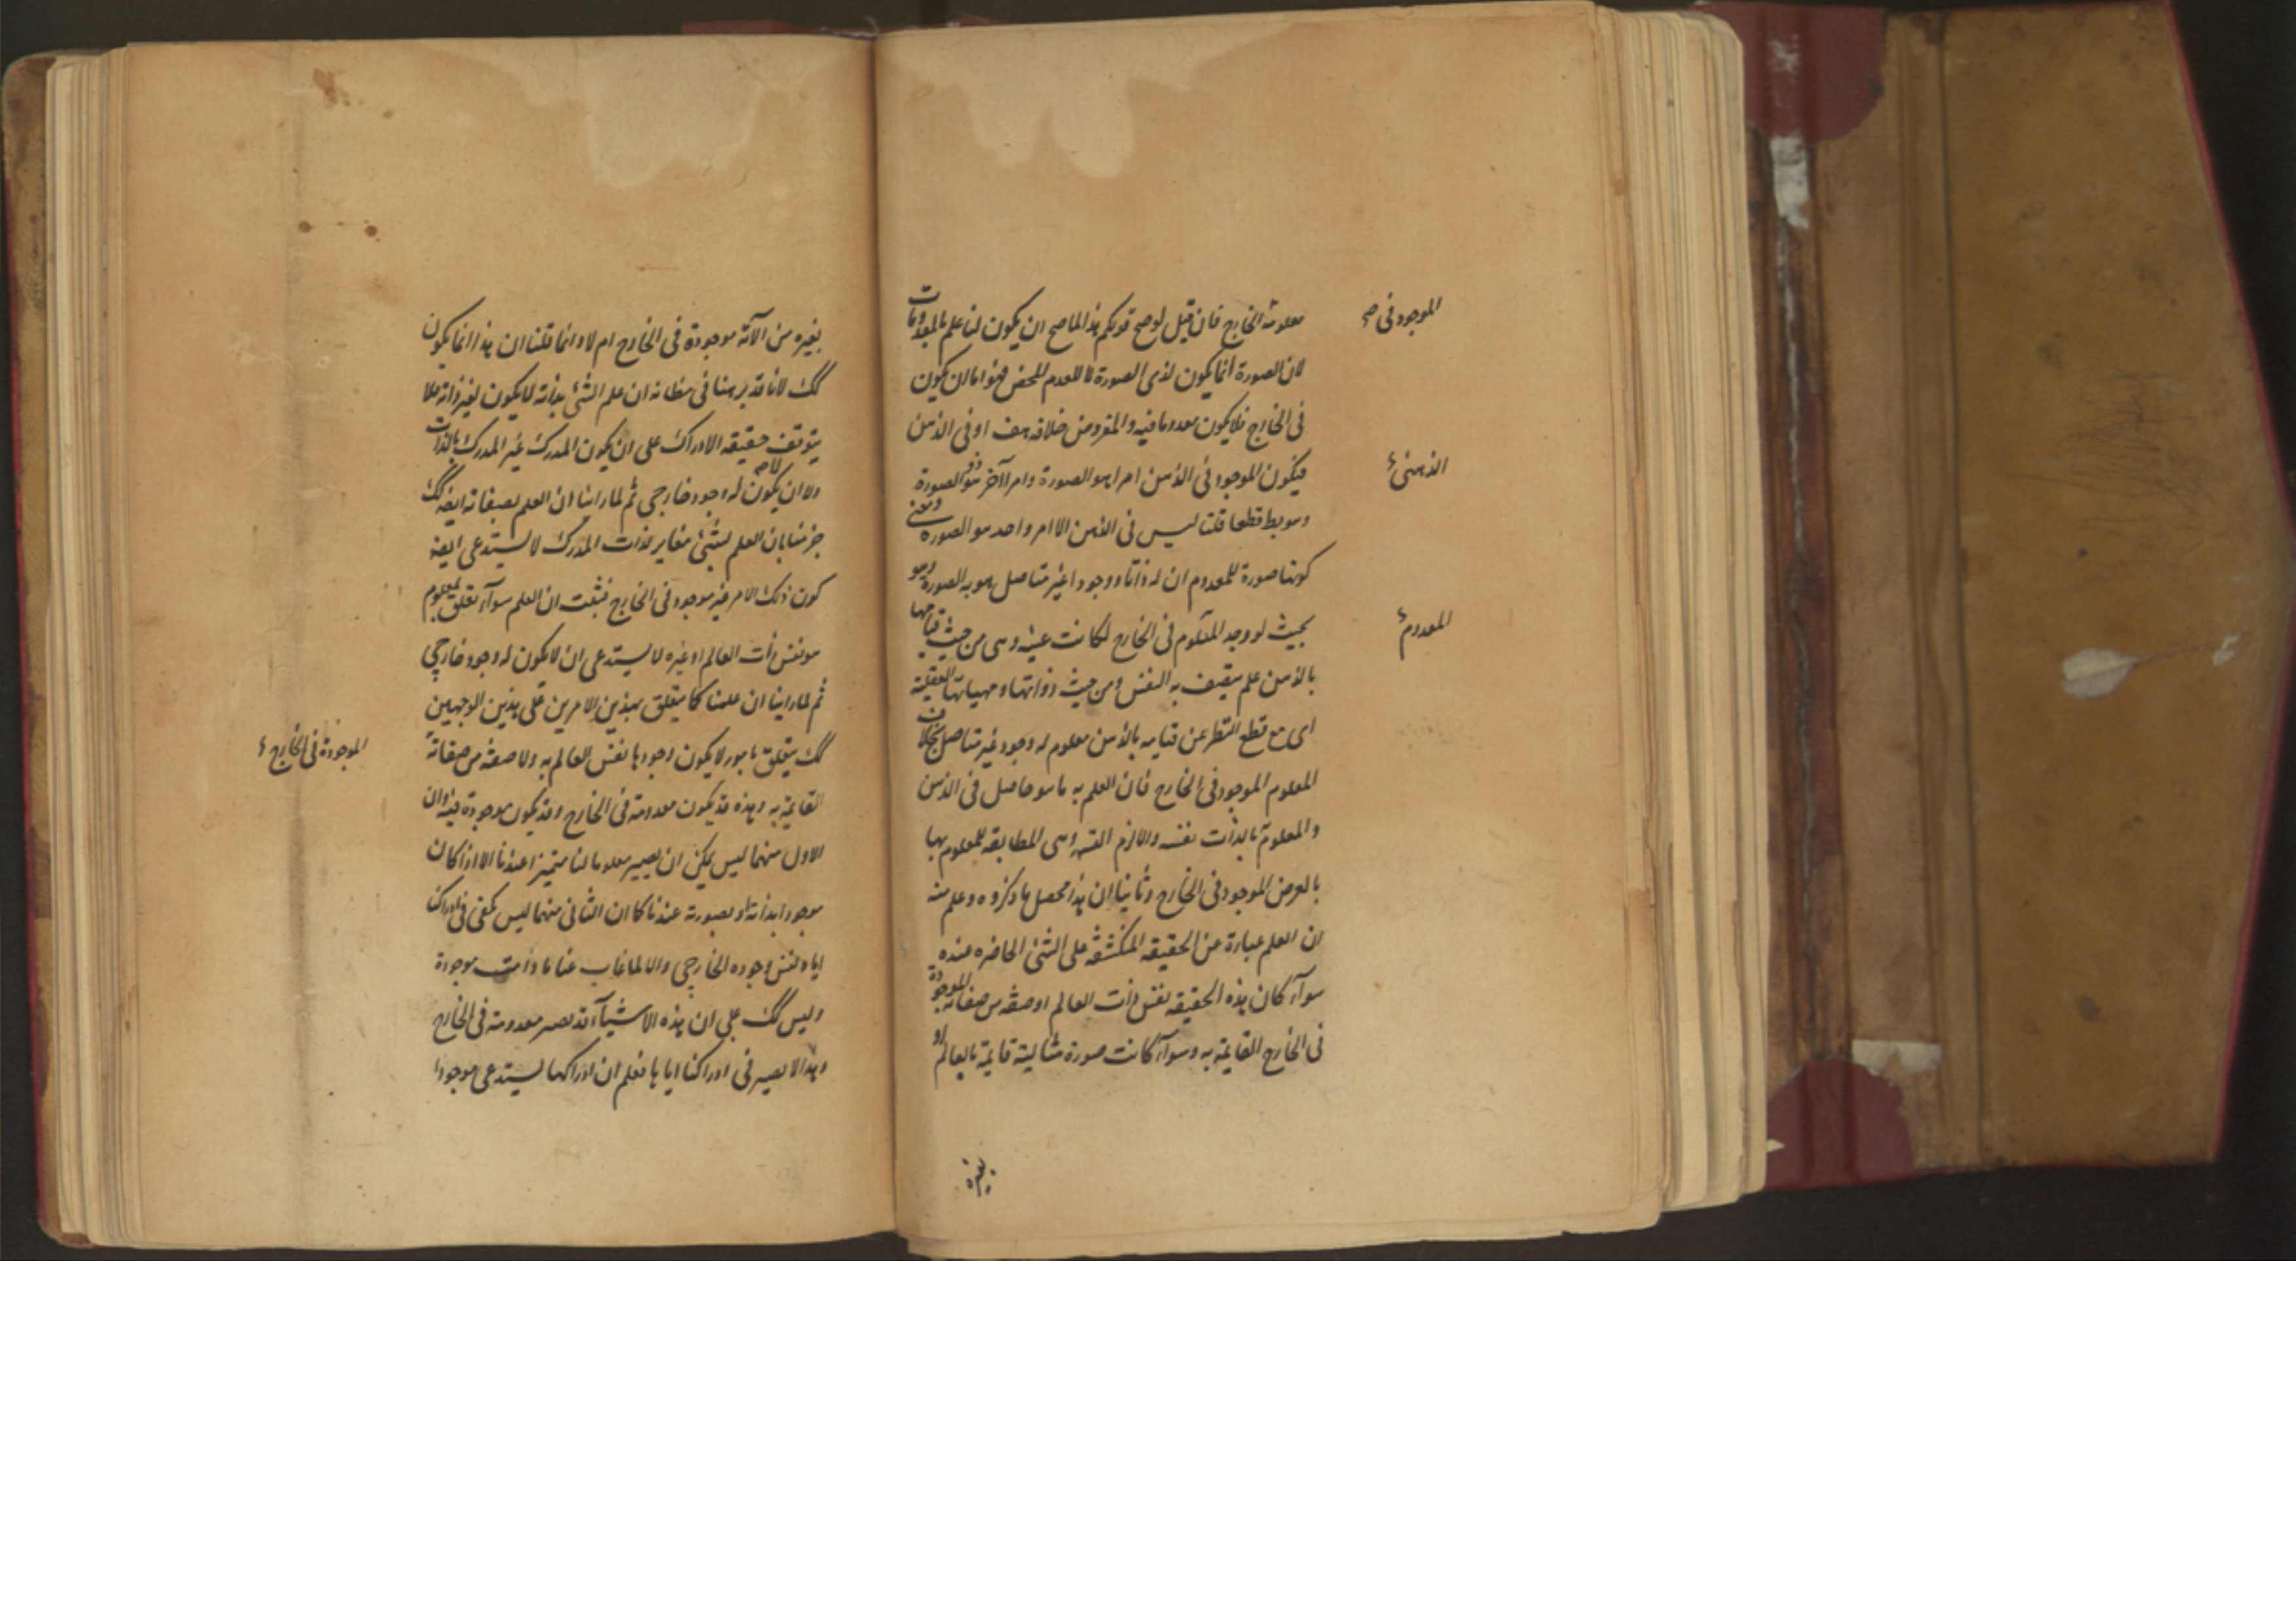 معلومة الخارج فان قيل لو صح قولكم هذا لما صح ان يكون لنا علم بالمعدومات
الموجود في صح
لان الصورة انما يكون لذى الصورة لا للعدم المحض فهو اما ان يكون
فى الخارج فلا يكون معدوما فيه والمفروض خلافه هف او فى الذهن
فيكون الموجود فى الذهن امرا هو الصورة وامرا آخر هو ذو الصورة
الذهنى
وهو بط قطعا قلنا ليس فى الذهن الا امر واحد هو الصورة ومعنى
كونها صورة للمعدوم ان له ذاتا ووجودا غير متاصل هو به الصورة وهو
بحيث لو وجد المعلوم فى الخارج لكانت عينه وهى من حيث قيامها
المعدوم
بالذهن علم يتصف به النفس ومن حيث ذواتها ومهياتها العقلية
اى مع قطع النظر عن قيامه بالذهن معلوم له وجود غير متاصل بخلاف
المعلوم الموجود فى الخارج فان العلم به ما هو حاصل فى الذهن
والمعلوم بالذات نفسه والازم وهى المطابقة للمعلوم بها
بالعرض الموجود فى الخارج وثانيا ان هذا محصل ما ذكروه وعلم منه
ان العلم عبارة عن الحقيقة المنكشفة على الشئ الحاضره عنده
سوآء كان هذه الحقيقه نفس ذات العالم او صفة من صفاته الموجودة
فى الخارج القايمة به وسوآء كانت صورة مثالية قايمة بالعالم او
بغيره
بغيره من الآلة موجودة فى الخارج ام لا وانما قلنا ان هذا انما يكون
كك لانا قد برهنا فى مظانه ان علم الشئ بذاته لا يكون لغير ذاته فلا
يتوقف حقيقه الادراك على ان يكون المدرك غير المدرك بالذات
ولا ان يكون له وجود خارجى ثم لما راينا ان العلم بصفاته ايضا كك
جزمنا بان العلم بشئ مغاير لذات المدرك لا يستدعى ايضا
كون ذلك الامر غير موجود فى الخارج فثبت ان العلم سوآء تعلق بمعلوم
هو نفس ذات العالم او غيره لا يستدعى ان لا يكون له وجود خارجى
ثم لما راينا ان علمنا كما يتعلق بهذين الامرين على هذين الوجهين
كك يتعلق بامور لا يكون وجودها نفس العالم به ولا صفة من صفاته
الموجودة فى الخارج
القايمة به وهذه قد يكون معدومة فى الخارج وقد يكون موجودة فيه وان
الاول منهما ليس يمكن ان يصير معلوما لنا متميزا عندنا الا اذا كان
موجودا بذاته او بصورته عندنا كما ان الثانى منهما ليس يكفى فى ادراكنا
اياه نفس وجوده الخارجى والا لما غاب عنا ما دامت موجودة
وليس كك على ان هذه الاشيآء قد تصير معدومة فى الخارج
وهذا لا يضر فى ادراكنا اياها فعلم ان ادراكها يستدعى موجودا